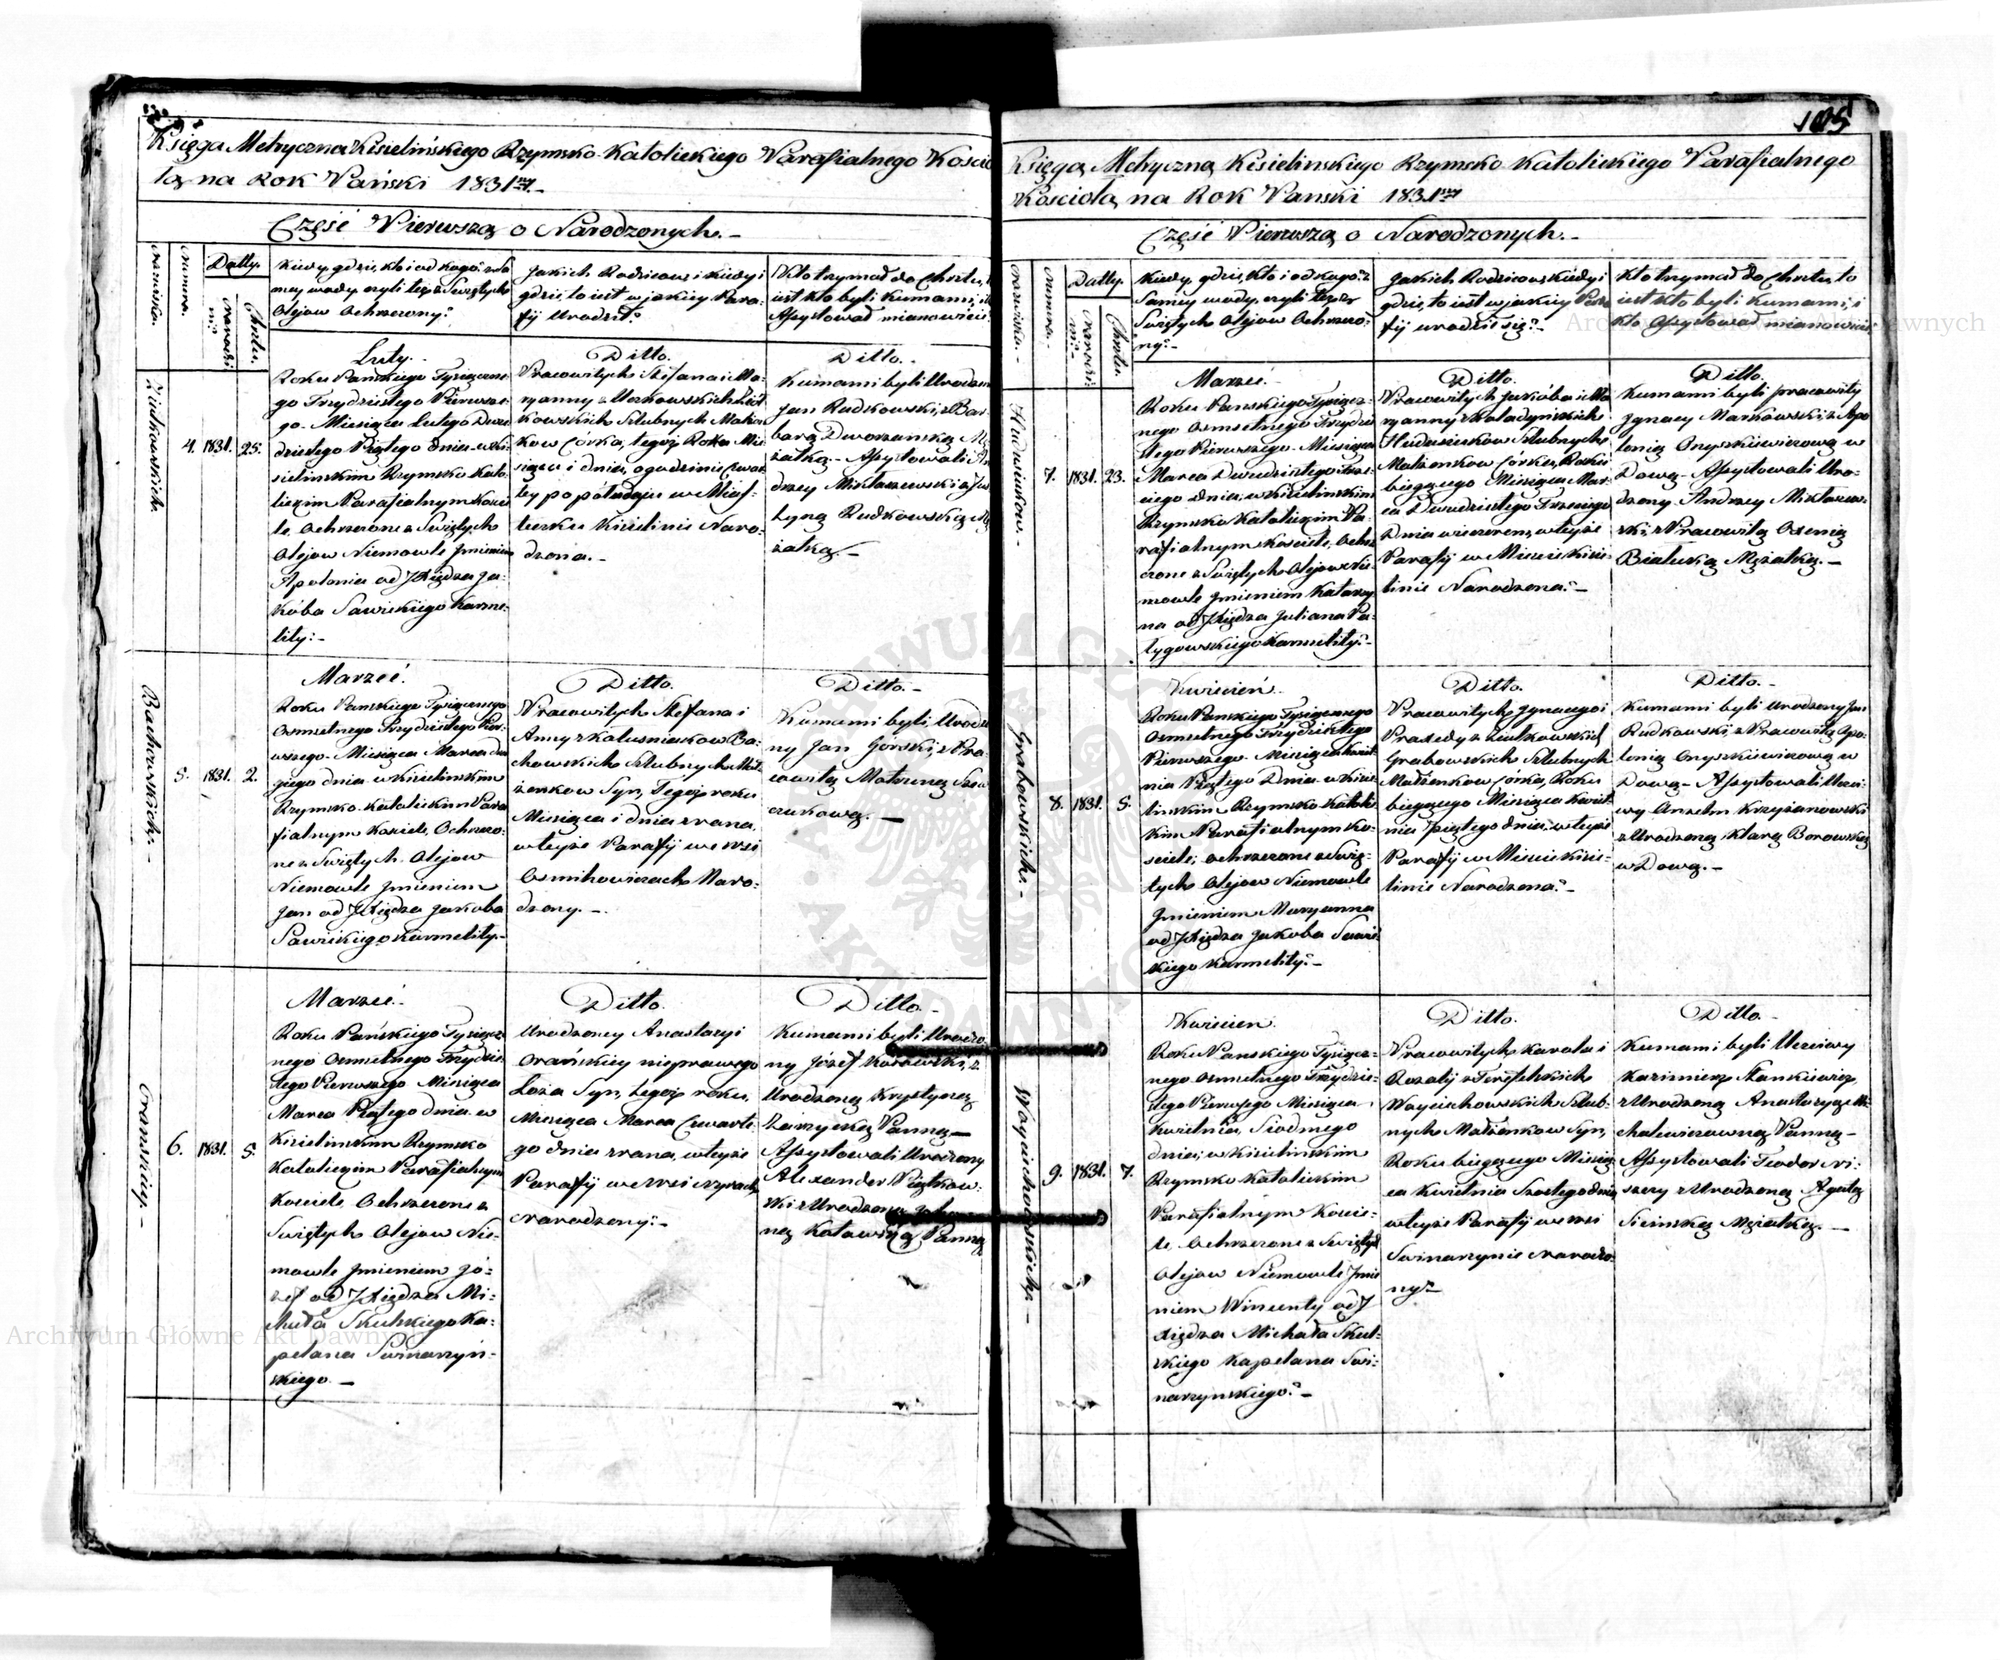 Księga Metryczna Kisielińskiego Rzymsko-Katolickiego Parafialnego Koście
ła na Rok Pański 1831.
Część Pierwsza o Narodzonych.
Nazwiska.
Numera.
Datty.
Chrztu.
Kiedy, gdzie, kto i od kogo z sa
mey wody czyli też z Świętych
Olejow Ochrzczony?
Jakich Rodzicow i kiedy i
gdzie, to iest w jakiey Para-
fij Urodził?
Kto trzymał do Chrztu, to
iest kto byli Kumami, i
Assystował mianowicie
Ziutkowskich
4.
1831.
25.
Luty.
Roku Pańskiego Tysiączne
go Trzydziestego Pierwsze-
go. Miesiąca Lutego Dwu
dziestego Piątego dnia w Ki-
sielinskim Rzymsko Kato-
lickim Parafialnym Kości
le, Ochrzczone z Świętych
Olejow Niemowle Jmieniem
Apolonia od JXiędza Ja-
kóba Sawickiego Karme-
lity.-
Ditto.
Pracowitych Stefana i Ma-
ryanny z Ziut
kowskich Szlubnych Małżon
kow Córka, tegoż Roku Mie
siąca i dnia, o godzinie Czwar
tey po południu w Mias-
teczku Kisielinie Naro-
dzona.-
Ditto.-
Kumami byli Urodzon
Jan Rudkowski, z Bar
barą Dworzanską Mę
żatką.- Assystowali An
drzey Miktaszewski z Ju
styną Rudkowską Mę
żatką.-
Bachowskich.-
5.
1831.
2.
Marzec.
Roku Panskiego Tysiącznego
Osmsetnego Trzydziestego Pier
wszego. Miesiąca Marca dru
giego dnia w Kisielinskim
Rzymsko-Katolickim Para
fialnym Kosciele, Ochrzczo-
ne z Świętych Olejow
Niemowle Jmieniem
Jan od JXiędza Jakoba
Sawickiego Karmelity.-
Ditto.
Pracowitych Stefana i
Anny z Kaluśniakow Ba-
chowskich Szlubnych Mał-
żonkow Syn, Tegoż roku
Miesiąca i dnia zrana
wteyże Parafij we wsi
Osmihowiczach Naro-
dzony.-
Ditto.-
Kumami byli Urodzo
ny Jan Górski, z Pra
cowitą Matroną Szew
czukową.-
Oranskiey.-
6.
1831.
5.
Marzec.
Roku Pańskiego Tysiącz
nego Osmsetnego Trzydzies
tego Pierwszego Miesiąca
Marca Piątego dnia w
Kisielinskim Rzymsko
Katolickim Parafialnym
Kosciele Ochrzczone z
Świętych Olejow Nie-
mowle Jmieniem Jó-
zef od JXiędza Mi-
chała Skulskiego Ka-
pelana Swinarzyń-
skiego.-
Ditto.
Urodzoney Anastazyi
Orańskiey nieprawego
Łoża Syn, tegoż roku,
Miesiąca Marca Czwarte-
go dnia zrana, wteyże
Parafij we wsi
Narodzony.-
Ditto.-
Kumami byli Urodzo
ny Józef z
Urodzoną Krystyną
Panną-
Assystowali Urodzony
Alexander Piątkow-
ski z Urodzoną
Panną
105
Księga Metryczna Kisielinskiego Rzymsko Katolickiego Parafialnego
Kościoła na Rok Panski 1831
Część Pierwsza o Narodzonych.-
Nazwiska.-
Numera.
Datty.
Chrztu.
Kiedy, gdzie, kto i od kogo z
Samey wody, czyli też z
Świętych Olejow Ochrzczo-
ny?-
Jakich Rodzicow i kiedy i
gdzie, to iest w jakiey Para
fij urodził się?-
Kto trzymał do Chrztu, to
iest kto byli Kumami, i
kto Assystował mianowicie
Hudzieiukow.-
7.
1831.
23.
Marzec.
Roku Panskiego Tysiącz-
nego Osmsetnego Trzydzies
tego Pierwszego. Miesiąca
Marca Dwudziestego Trze-
ciego dnia, w Kisielinskim
Rzymsko Katolickim Pa-
rafialnym Kosciele, Ochrz
czone z Świętych Olejow Nie-
mowle Jmieniem Katarzy
na od JXiędza Juliana Pa-
tygowskiego Karmelity.-
Ditto.
Pracowitych Jakóba i Ma
ryanny z Kaladyńskich
Hudzieiukow Szlubnych
Małżonkow Córka, Roku
bieżącego Miesiąca Mar-
ca Dwudziestego Trzeciego
Dnia wieczorem, wteyże
Parafij w Miescie Kisie-
linie Narodzona.-
Ditto.
Kumami byli pracowity
Jgnacy Markowski, z Apo
lonią Onyskiewiczową w
Dową- Assystowali Uro-
dzony Andrzey Miktaszew-
ski, z Pracowitą Oxenią
Białucką Mężatką.-
Grabowskich.-
8.
1831.
5.
Kwiecień.
Roku Panskiego Tysiącznego
Osmsetnego Trzydziestego
Pierwszego. Miesiąca Kwiet
nia Piątego Dnia w Kisie-
linskim Rzymsko Katolic
kim Parafialnym Ko-
sciele, ochrzczone z Świę-
tych Olejow Niemowle
Jmieniem Maryanna
od JXiędza Jakoba Sawic
kiego Karmelity.-
Ditto.
Pracowitych Jgnacego i
Praxedy z Ziutkowskich
Grabowskich Szlubnych
Małżonkow Córka, Roku
bieżącego Miesiąca Kwiet
nia piątego dnia, wteyże
Parafij w Miescie Kisie-
linie Narodzona.-
Ditto.-
Kumami byli Urodzony Jan
Rudkowski, z Pracowitą Apo-
lonią Onyskiewiczową w
Dową- Assystowali Ucci-
wy Anzelm Krzyżanowski
z Urodzoną Klarą Borowską
w Dową.-
Woyciechowskich.-
9.
1831.
7.
Kwiecien.
Roku Panskiego Tysiącz-
nego Osmsetnego Trzydzies-
tego Pierwszego Miesiąca
Kwietnia, Siodmego
dnia, w Kisielinskim
Rzymsko Katolickim
Parafialnym Koscie-
le, Ochrzczone z Świętych
Olejow Niemowle Jmie
niem Wincenty od J
Xiędza Michała Skul-
skiego Kapelana Swi-
narzynskiego.-
Ditto.
Pracowitych Karola i
Rozalij z
Woyciechowskich Szlub-
nych Małżonkow Syn,
Roku bieżącego Miesią
ca Kwietnia Szostego dnia
wteyże Parafij we wsi
Swinarzynie Narodzo-
ny.-
Ditto.-
Kumami byli Ucciwy
Kazimierz Stankiewicz,
z Urodzoną Anastazyą Mi
chalewiczowną Panną-
Assystowali Teodor Ni-
szczy z Urodzoną Agatą
Sicińską Mężatką.-
Archiwum Główne Akt Dawnych
Archiwum Główne Akt Dawnych